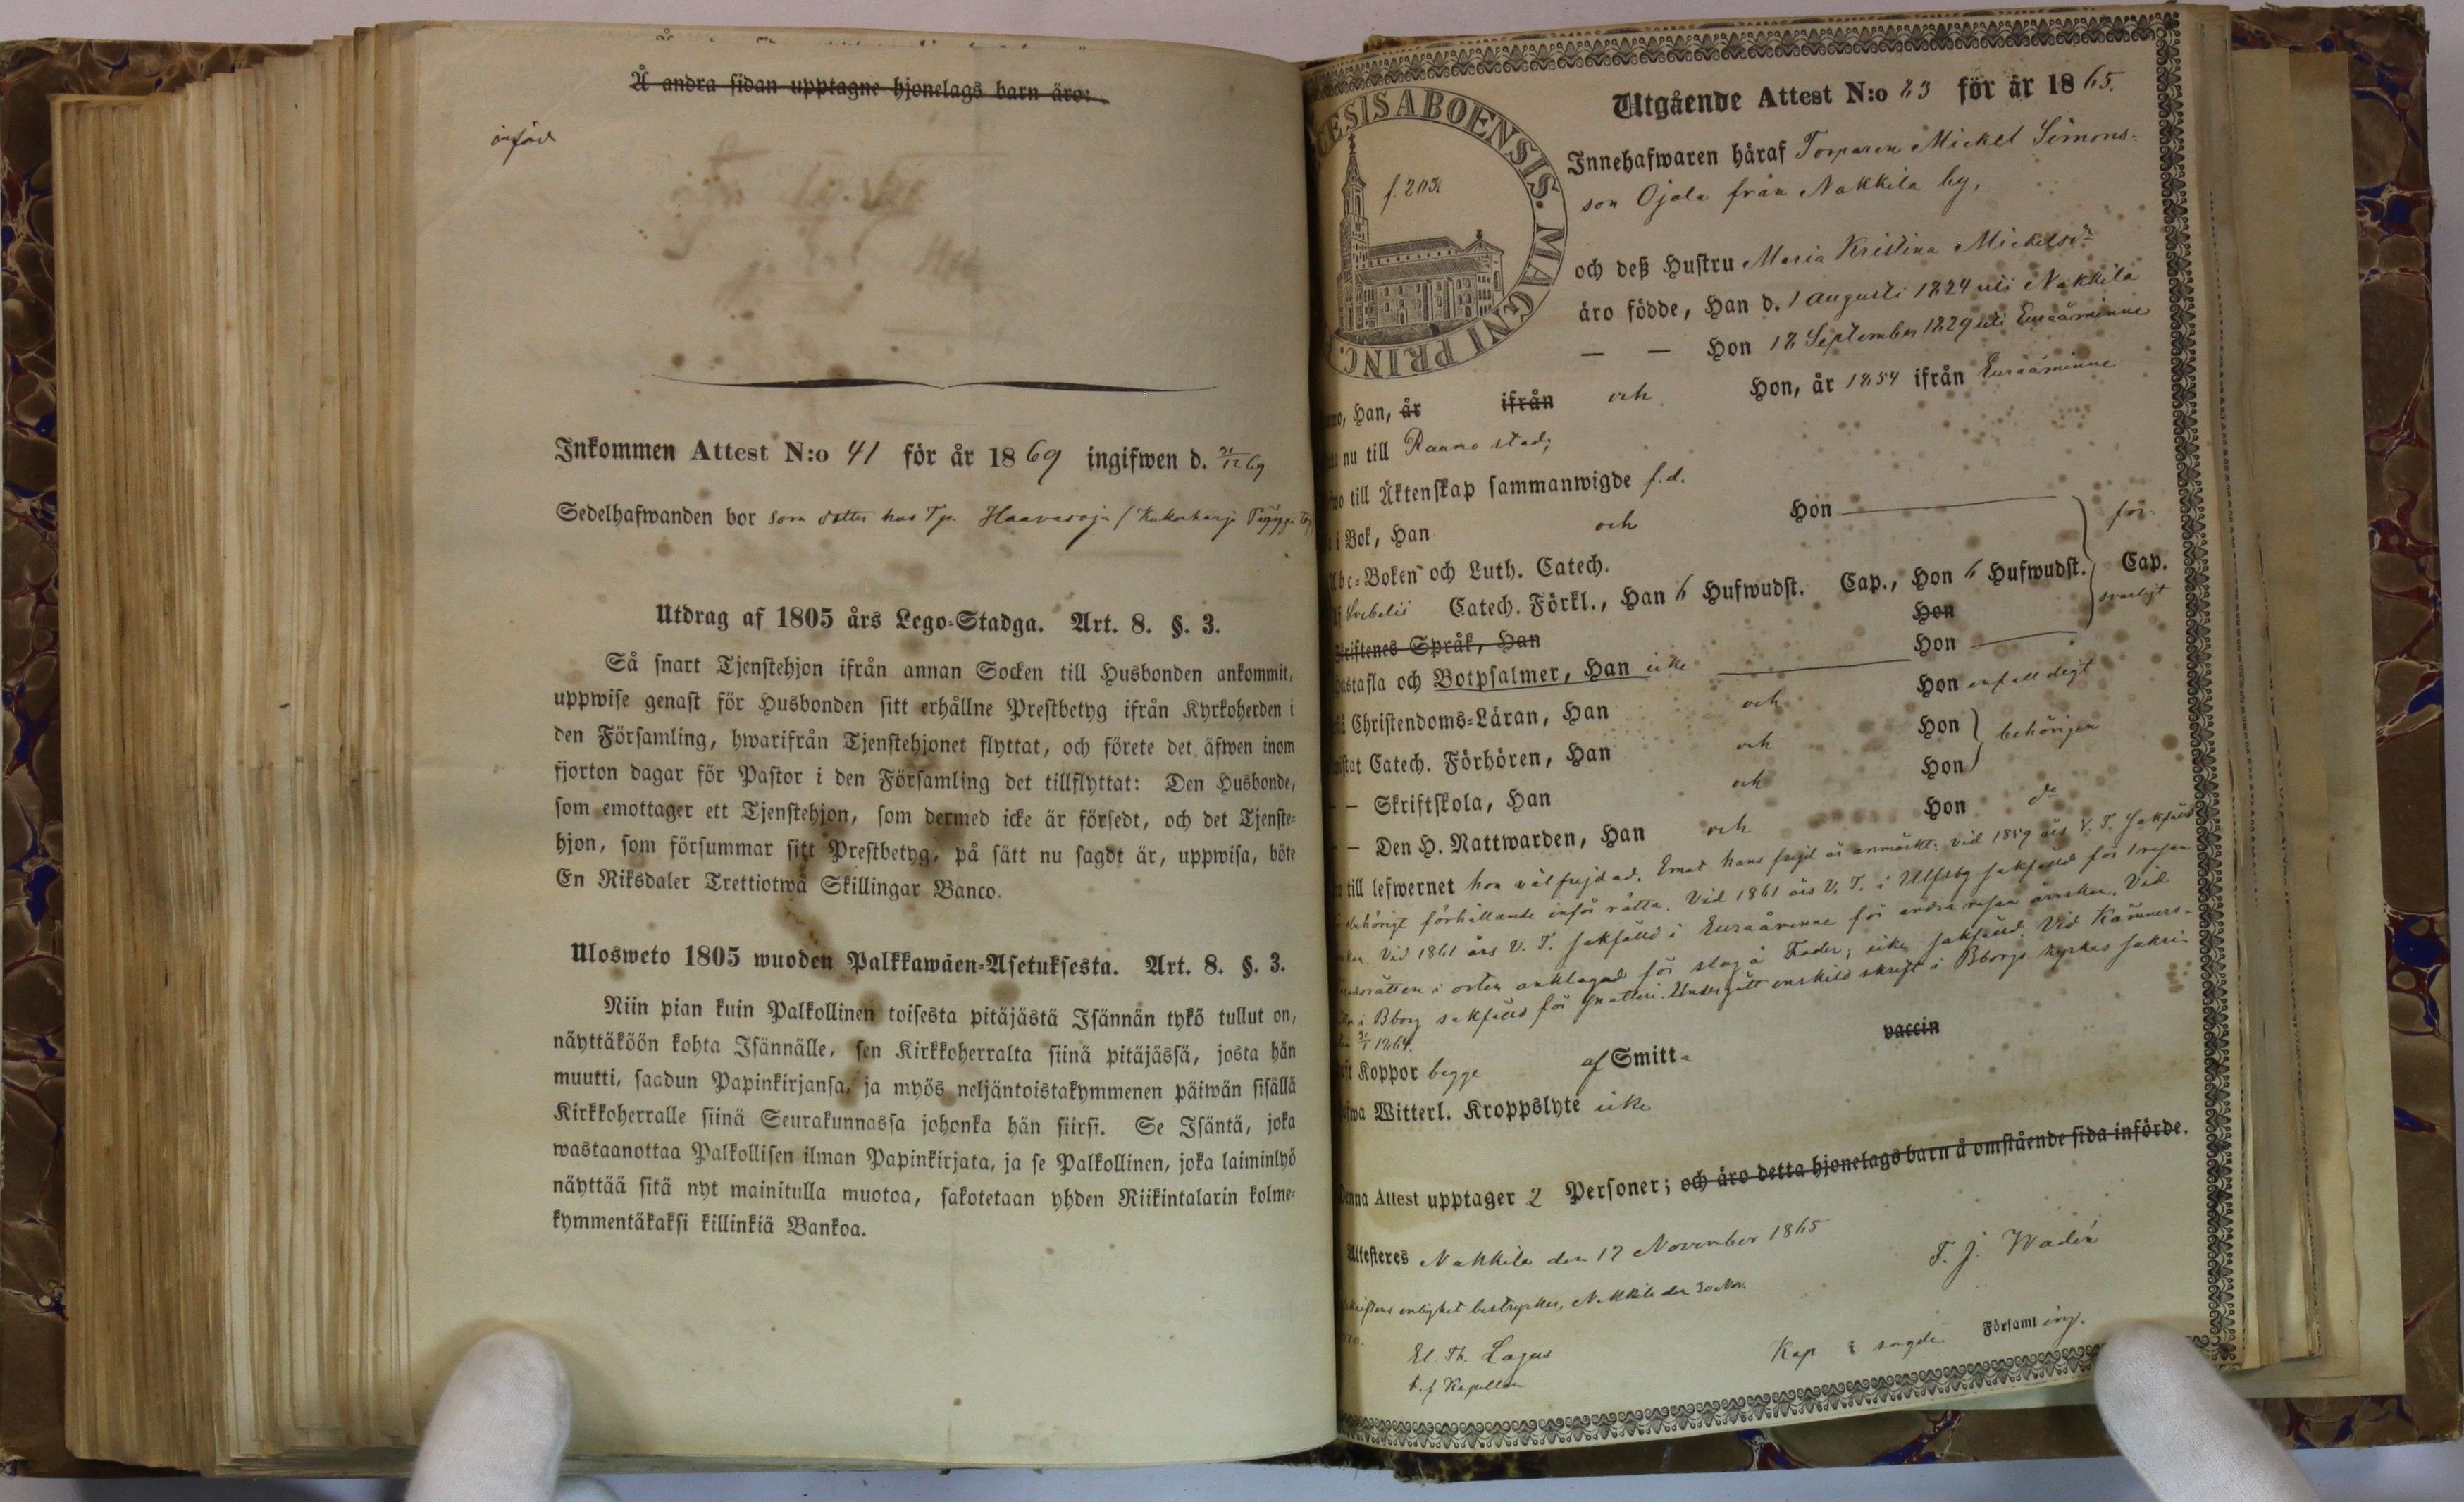 Å andra sidan upptagne hjonelags barn äro:
införd
Inkommen Attest N:o 41 för år 1869 ingifwen d. 21/12 69
Sedelhafwanden bor som dotter hos Tp. Haavasoja
Utdrag af 1805 års Lego-Stadga. Art. 8. §. 3.
Så snart Tjenstehjon ifrån annan Socken till Husbonden ankommit,
uppwise genast för Husbonden sitt erhållne Prestbetyg ifrån Kyrkoherden i
den Församling, hwarifrån Tjenstehjonet flyttat, och förete det äfwen inom
fjorton dagar för Pastor i den Församling det tillflyttat: Den Husbonde,
som emottager ett Tjenstehjon, som dermed icke är försedt, och det Tjenste-
hjon, som försummar sitt Prestbetyg, på sätt nu sagdt är, uppwisa, böte
En Riksdaler Trettiotwå Skillingar Banco.
Ulosweto 1805 wuoden Palkkawäen-Asetuksesta. Art. 8. §. 3.
Niin pian kuin Palkollinen toisesta pitäjästä Isännän tykö tullut on,
näyttäköön kohta Isännälle, sen Kirkkoherralta siinä pitäjässä, josta hän
muutti, saadun Papinkirjansa, ja myös neljäntoistakymmenen päiwän sisällä
Kirkkoherralle siinä Seurakunnassa johonka hän siirsi. Se Isäntä, joka
wastaanottaa Palkollisen ilman Papinkirjata, ja se Palkollinen, joka laiminlyö
näyttää sitä nyt mainitulla muotoa, sakotetaan yhden Riikintalarin kolme-
kymmentäkaksi killinkiä Bankoa.
ESIS ABOENSIS. MAGNI PRINC.
f. 203.
Utgående Attest N:o 83 för år 1865.
Innehafwaren häraf Torparen Mickel Simons-
son Ojala från Nakkila by,
och deß Hustru Maria Kristina Mickelsdr
äro födde, Han d. 1 Augusti 1824 uti Nakkila
— — Hon 18 September 1829 uti Euraåminne
Han, år ifrån och Hon, år 1854 ifrån Euraåminne
nu till Raumo stad;
till Äktenskap sammanwigde f.d.
i Bok, Han och Hon
Abc-Boken och Luth. Catech. för-
Svebelii Catech. Förkl., Han 6 Hufwudst. Cap., Hon 6 Hufwudst. Cap.
Språk, Han Hon svarligt
och Botpsalmer, Han icke Hon
Christendoms-Läran, Han och Hon enfaldigt
Catech. Förhören, Han och Hon behörigen
— Skriftskola, Han och Hon
— Den H. Nattwarden, Han och Hon do
till lefwernet hon välfrejdad. Emot hans frejd är anmärkt: vid 1859 års V. T. sakfälld
förhållande inför rätta. Vid 1861 års V. T. i Ulfsby sakfälld för 1 resan
Vid 1861 års V. T. sakfälld i Euraåminne för andra resan Vid
i orten anklagad för slag å Fader; icke sakfälld. Vid Kämners-
i Bborg sakfälld för snatteri. Undergått enskild skrift i Bborgs kyrkas sakri-
1864.
Koppor begge af Smitta vaccin
Witterl. Kroppslyte icke
Attest upptager 2 Personer; och äro detta hjonelags barn å omstående sida införde.
Attesteres Nakkila den 17 November 1865
F. J. Wadén
enlighet bestyrkes, Nakkila den 30 Nov.
El. Th. Lagus Kap i sagde Församl ing.
t.f. Kapellan